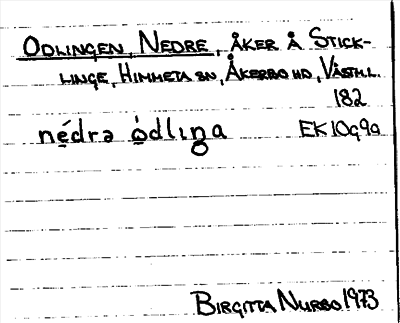 ODLINGEN, NEDRE, ÅKER Å STICK-
LINGE, HIMMETA SN, ÅKERBO HD, VÄSTML.
182
nédrə òdlıŋa EK 10g9a
BIRGITTA NURBO 1973